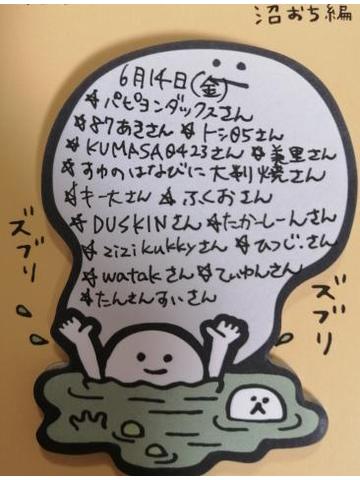 沼おち編
6月14日(金)
☆パピヨンダックスさん
☆87あきさん ☆トシ05さん
☆KUMASA0423さん ☆美里さん
☆すゆのはなびに大判焼さん
☆キー大さん ☆ふくおさん
☆DUSKINさん ☆たかーしーんさん
☆zizikukkyさん ☆ひつじ.さん
☆watakさん ☆てぃゆんさん
☆たんさんすいさん
ズブリ
ズブリ